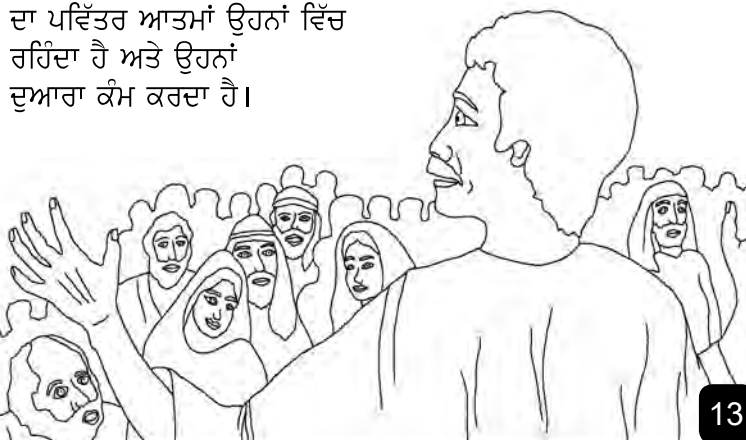 ਦਾ ਪਵਿੱਤਰ ਆਤਮਾਂ ਉਹਨਾਂ ਵਿੱਚ
ਰਹਿੰਦਾ ਹੈ ਅਤੇ ਉਹਨਾਂ
ਦੁਆਰਾ ਕੰਮ ਕਰਦਾ ਹੈ।
13